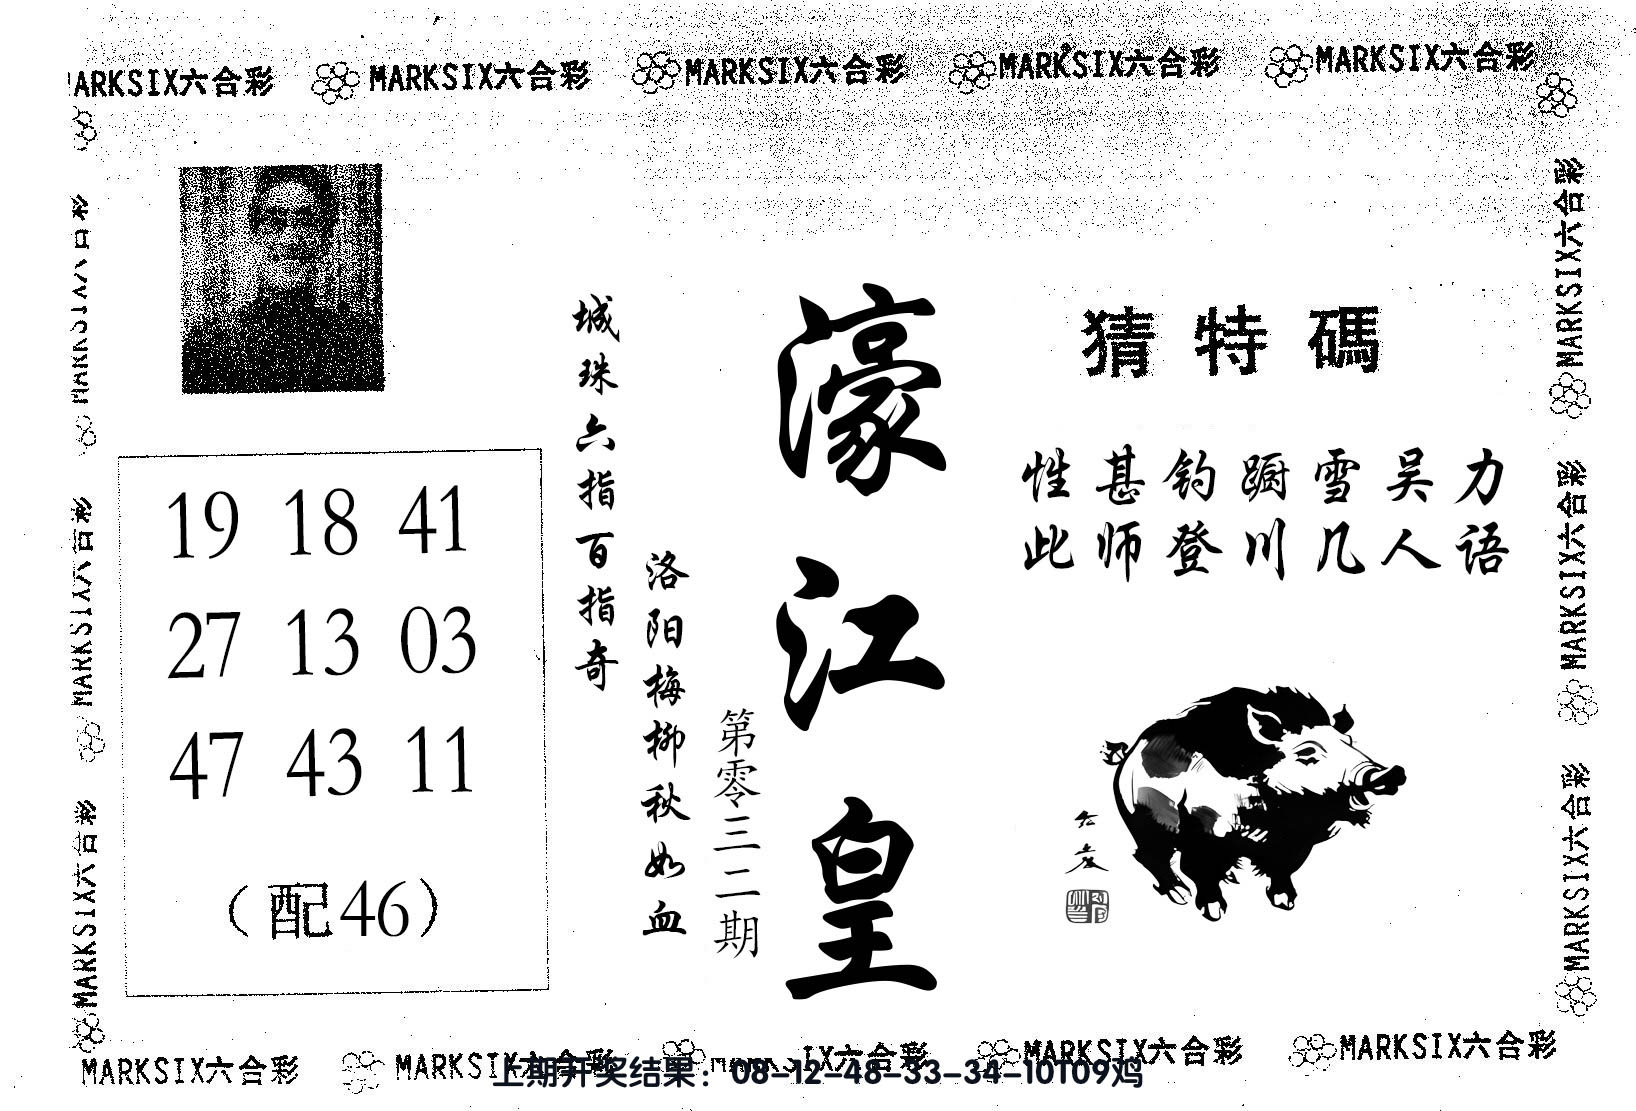 MARKSIX六合彩 MARKSIX六合彩 MARKSIX六合彩 MARKSIX六合彩 MARKSIX六合彩
猜特碼
性甚钓蹰雪吴力
此师登川几人语
濠江皇
第零三二期
洛阳梅柳秋如血
城珠六指百指奇
19 18 41
27 13 03
47 43 11
（配46）
MARKSIX六合彩
MARKSIX六合彩
MARKSIX六合彩
MARKSIX六合彩
MARKSIX六合彩
MARKSIX六合彩
MARKSIX六合彩 MARKSIX六合彩 MARKSIX六合彩 MARKSIX六合彩 MARKSIX六合彩
上期开奖结果：08-12-48-33-34-10T09鸡